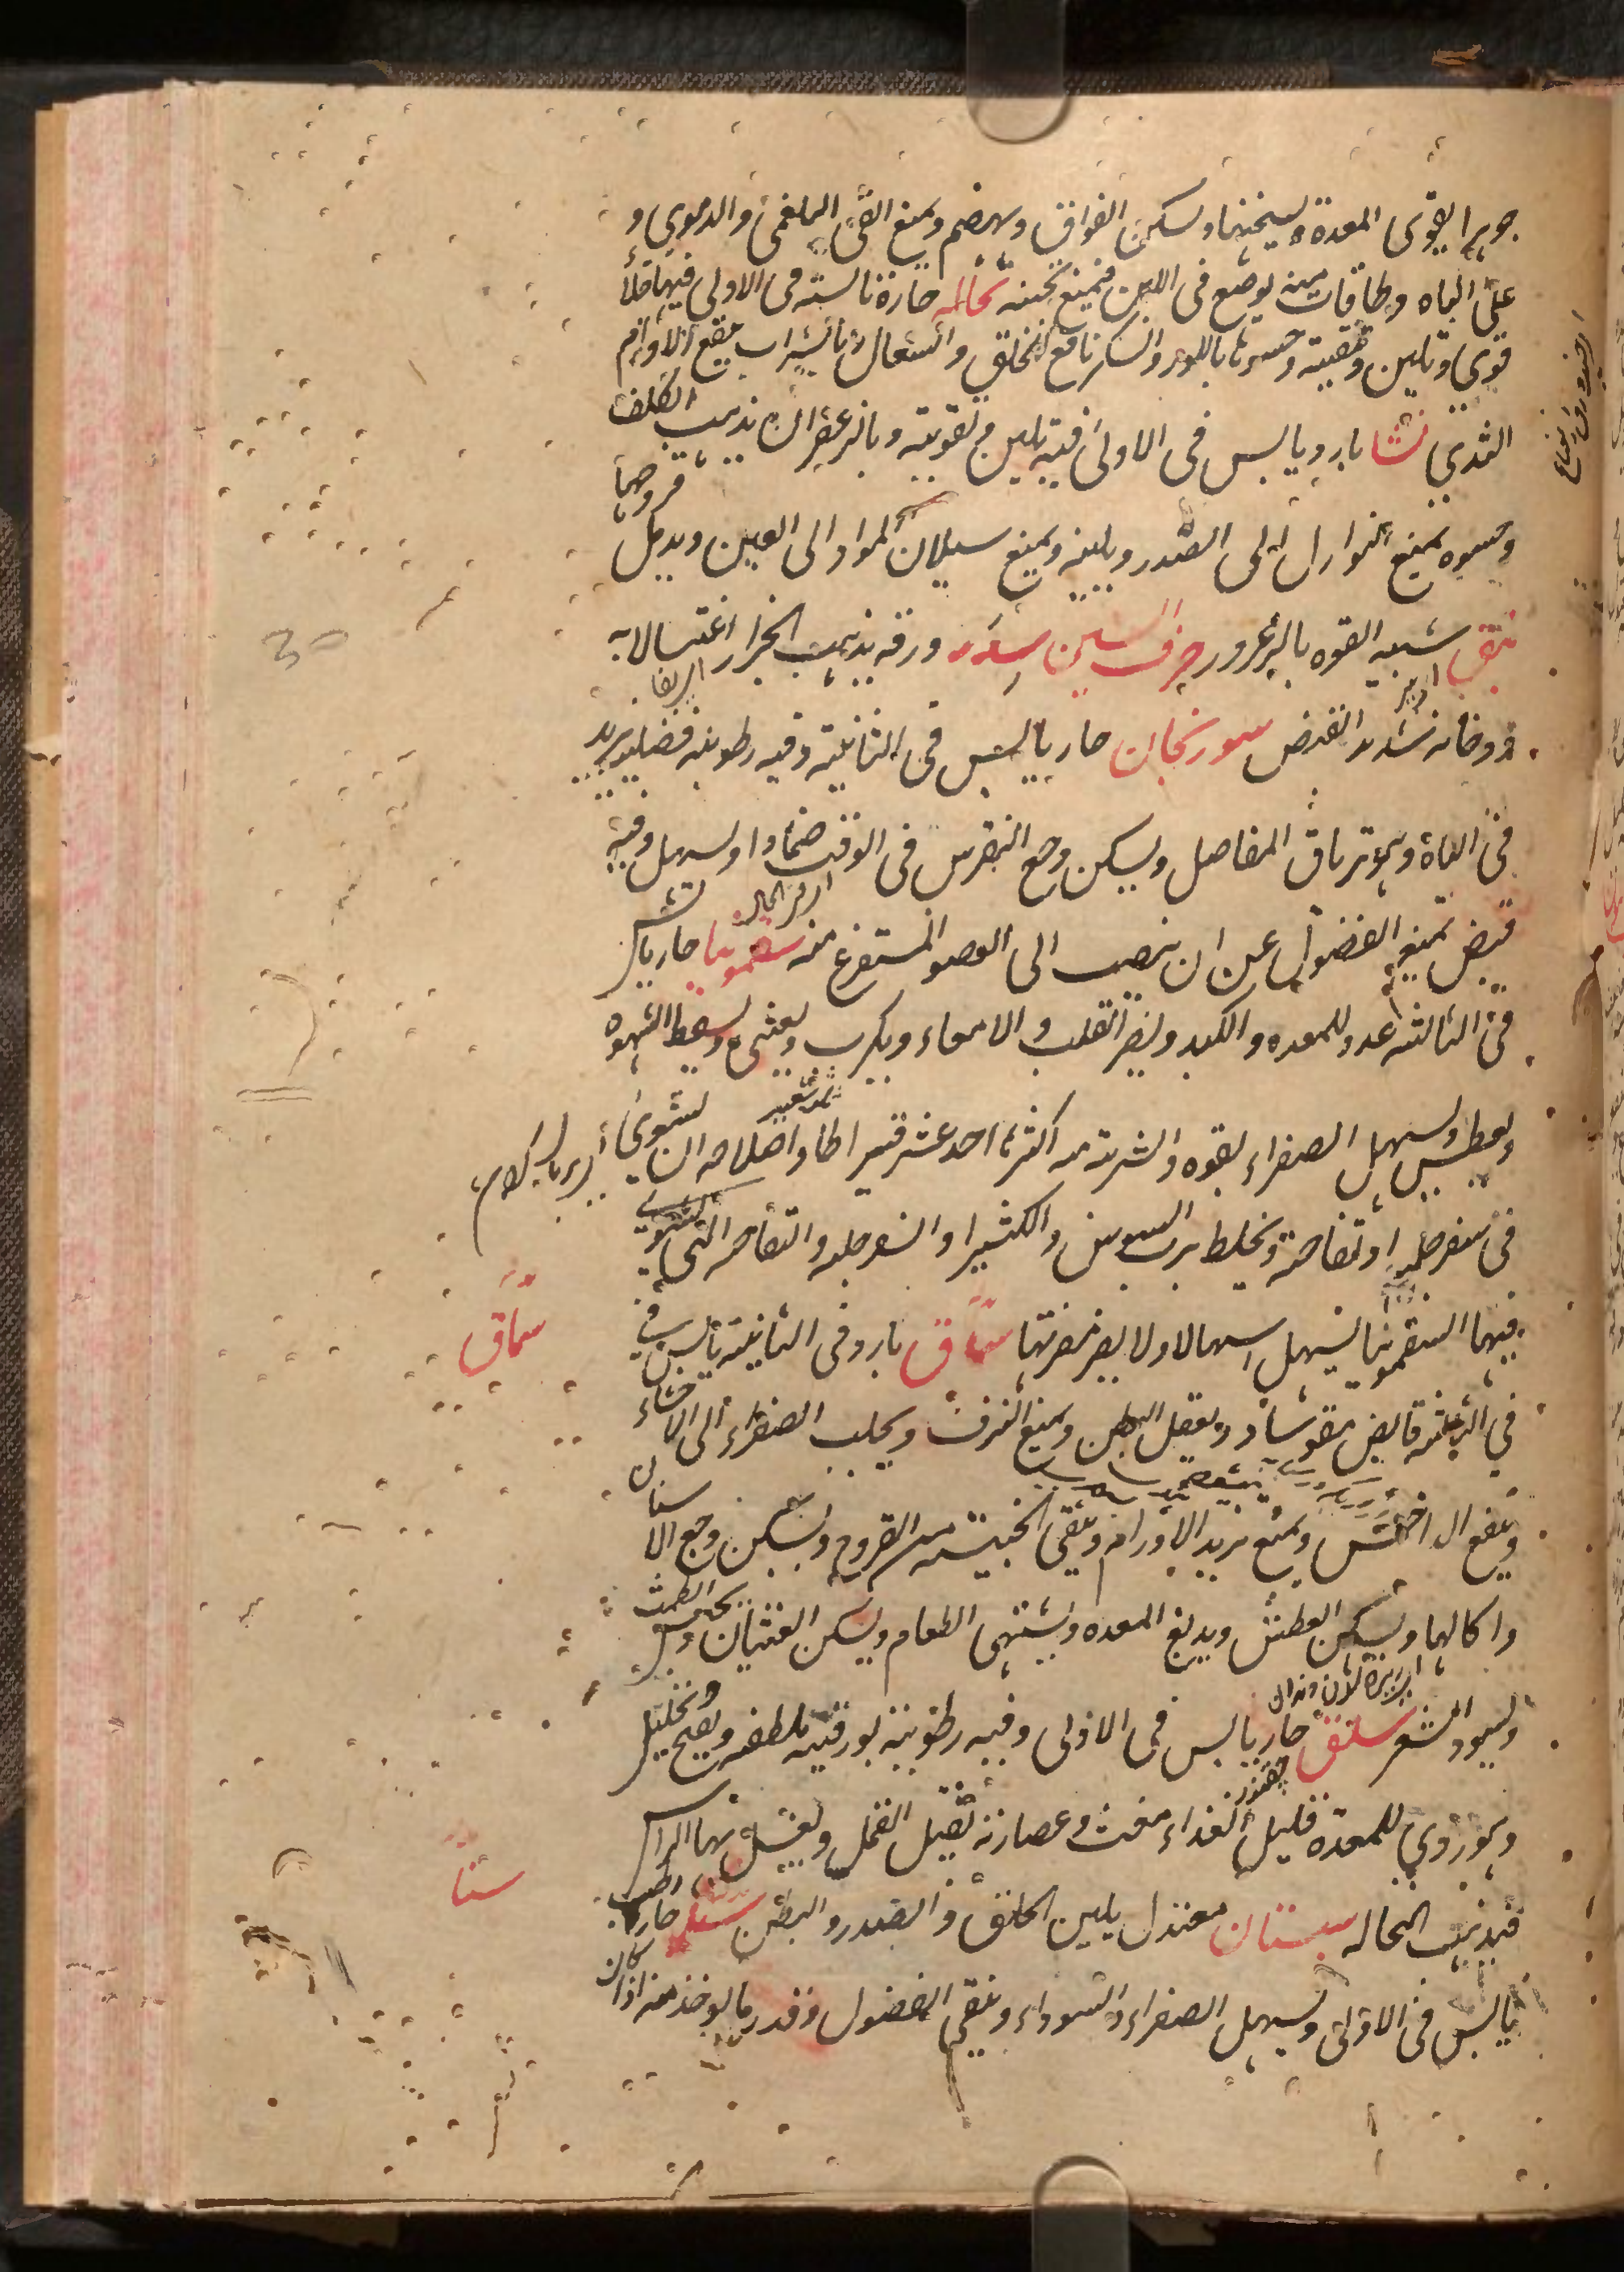 جوهرا يقوى المعدة ويسخنها ويسكن الفواق ويهضم ويمنع القئ البلغمى والدموى و
على الباه وطاقات منه يوضع فى اللبن فيمنع تجبنه نخاله حارة يابسته فى الاولى فيها جلاء
قوى وتليين وتنقية وحسوها باللوز والسكر نافع للحلق واستعمال بالشراب ينفع لاورام
الثدى نشا بارد يابس فى الاولى فيه تليين وتقوية وبالزعفران يذهب الكلف
وحسوه يمنع النوازل الى الصدر ويلينه ويمنع سيلان المواد الى العين ويدمل قروحها
نبق شبيه القوه بالزعرور حرف السين سدر ورقه يذهب الحزاز اغتسالا به
ودخانه شديد القبض سورنجان حار يابس فى الثانية وفيه رطوبة فضلية يزيد
فى الباه وهو ترياق المفاصل ويسكن وجع النقرس فى الوقت ضمادا ويسهل وفيه
قبض يمنع الفضول عن ان ينصب الى العضو المستفرغ منه سقمونيا حار يابس
فى الثالثه عدو للمعده والكبد ويضر القلب والامعاء ويكرب ويغثى ويسقط الشهوه
ويعطش ويسهل الصفراء بقوه والشربة منه اكثرها احد عشر قيراطا واصلاحه ان يشوى
فى سفرجله او تفاحة ويخلط برب السوس والكثيرا والسفرجله والتفاحه التى يشوى
فيها السقمونيا يسهل اسهالا ولا يضر مضرتها سماق بارد فى الثانية يابس
سماق
فى الثالثه قابض مقو ساد ويعقل البطن ويمنع النزف ويجلب الصفراء الى الاحشاء
وينفع الداحس ويمنع تزيد الاورام وينقى الخبيثه من القروح ويسكن وجع الاسنان
واكالها ويسكن العطش ويدبغ المعده ويشهى الطعام ويسكن الغثيان
ويسود الشعر سلق حار يابس فى الاولى وفيه رطوبة بورقيه ملطفه وتحليل
چقندر
وهو ردى للمعدة قليل الغذاء مغث وعصارته تقتل القمل ويغسل بها الراس
فيذهب النخاله سبستان معتدل يلين الحلق والصدر والبطن سنا حار
سنا
يابس فى الاولى ويسهل الصفراء والسوداء وينقى الفضول وقدر ما يوخذ منه اذا كان